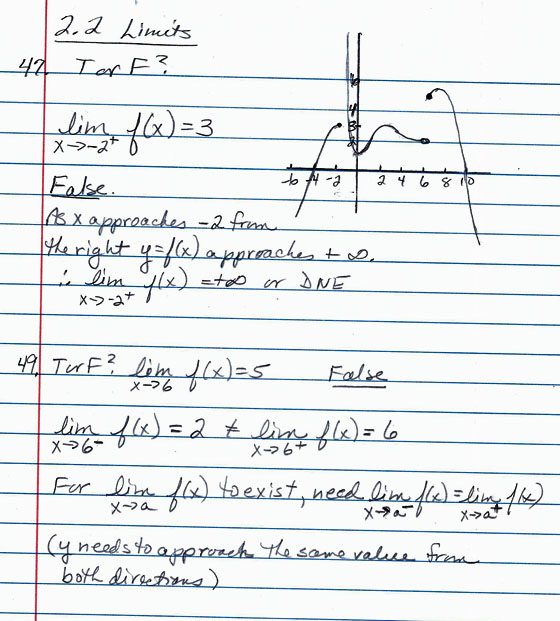 2.2 Limits
47. T or F?
lim f(x) = 3
x→-2⁺
6
4
3
2
-6 -4 -2 2 4 6 8 10
False.
As x approaches -2 from
the right y=f(x) approaches + ∞.
∴ lim f(x) = +∞ or DNE
x→-2⁺
49. T or F? lim f(x) = 5 False
x→6
lim f(x) = 2 ≠ lim f(x) = 6
x→6⁻ x→6⁺
For lim f(x) to exist, need lim f(x) = lim f(x)
x→a x→a⁻ x→a⁺
(y needs to approach the same value from
both directions)